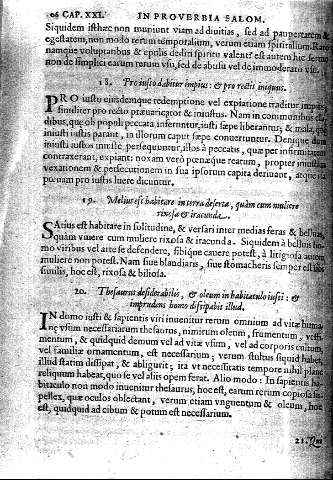 CAP. XXI. IN PROVERBIA SALOM.
Siquidem isthæc non muniunt viam ad divitias, sed ad paupertatem &
egestatem, non modo rerum temporalium, verum etiam spiritalium. Raro
namque voluptatibus & epulis dediti spiritu valent: est autem hic sermo
non de simplici earum rerum usu, sed de abusu vel de immoderato usu.
18. Pro iusto dabitur impius: & pro rectis iniquus.
PRO iusto eiusdemque redemptione vel expiatione traditur impius,
similiter pro recto prævaricator & iniustus. Nam in communibus
dibus, que ob populi peccata inferuntur, iusti sæpe liberantur, & mala, quæ
iniusti iustis parant, in illorum caput sæpe convertuntur. Denique dum
iniusti iustos iniuste persequuntur, illos à peccatis, quæ per infirmitatem
contraxerant, expiant: noxam verò pœnæque reatum, propter iniustam
vexationem & persecutionem in sua ipsorum capita derivant, atque ita
pœnam pro iustis luere dicuntur.
19. Melius est habitare in terra deserta, quàm cum muliere
rixosa & iracunda.
SAtius est habitare in solitudine, & versari inter medias feras & belluas,
quàm vivere cum muliere rixosa & iracunda. Siquidem à belluis
mo viribus vel arte se defendere, sibique cavere potest, à litigiosa autem
muliere non potest. Nam sive blandiaris, sive stomacheris semper est sibi
similis, hoc est, rixosa & biliosa.
20. Thesaurus desiderabilis, & oleum in habitaculo iusti: &
imprudens homo dissipabit illud.
IN domo iusti & sapientis viri invenitur rerum omnium ad vitæ humanæ
usum necessariarum thesaurus, nimirum oleum, frumentum, vestimentum,
& quidquid demum vel ad vitæ usum, vel ad corporis cultum,
vel familiæ ornamentum, est necessarium; verum stultus siquid habet,
illud statim dissipat, & abligurit; ita ut necessitatis tempore nihil planè
reliquum habeat, quo se vel aliis opem ferat. Alio modo: In sapientis
bitaculo non modo invenitur thesaurus, hoc est, earum rerum copiosa
pellex, quæ oculos oblectant, verum etiam unguentum & oleum, hoc
est, quidquid ad cibum & potum est necessarium.
21. Qui